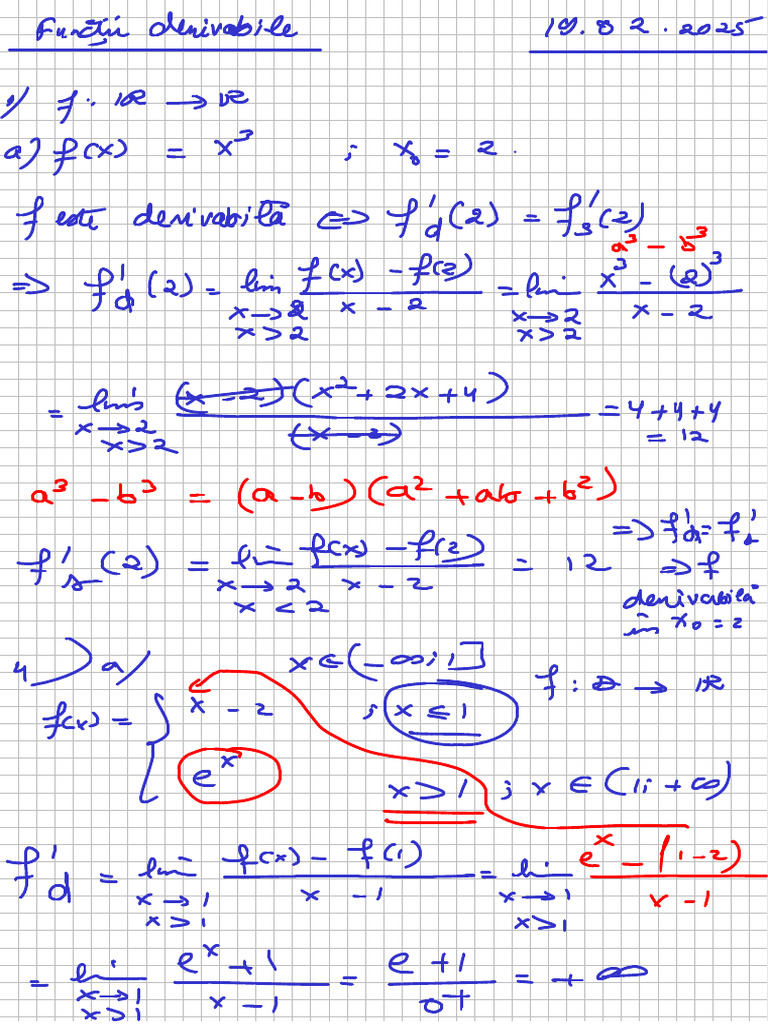 Funcții derivabile 19.02.2025
1) f: ℝ → ℝ
a) f(x) = x³ ; x₀ = 2.
f este derivabilă ⇔ f'd(2) = f's(2)
a³ - b³
⇒ f'd(2) = lim x→2 x>2 (f(x) - f(2))/(x - 2) = lim x→2 x>2 (x³ - (2)³)/(x - 2)
= lim x→2 x>2 (x-2)(x² + 2x + 4)/(x-2) = 4+4+4
= 12
a³ - b³ = (a - b)(a² + ab + b²)
f's(2) = lim x→2 x<2 (f(x) - f(2))/(x - 2) = 12
⇒ f'd = f's
⇒ f
derivabilă
în x₀ = 2
4) a) x ∈ (-∞; 1] f: D → ℝ
f(x) = { x - 2 ; x ≤ 1
eˣ x > 1 ; x ∈ (1; +∞)
f'd = lim x→1 x>1 (f(x) - f(1))/(x - 1) = lim x→1 x>1 (eˣ - (1-2))/(x-1)
= lim x→1 x>1 (eˣ + 1)/(x - 1) = (e + 1)/0+ = +∞